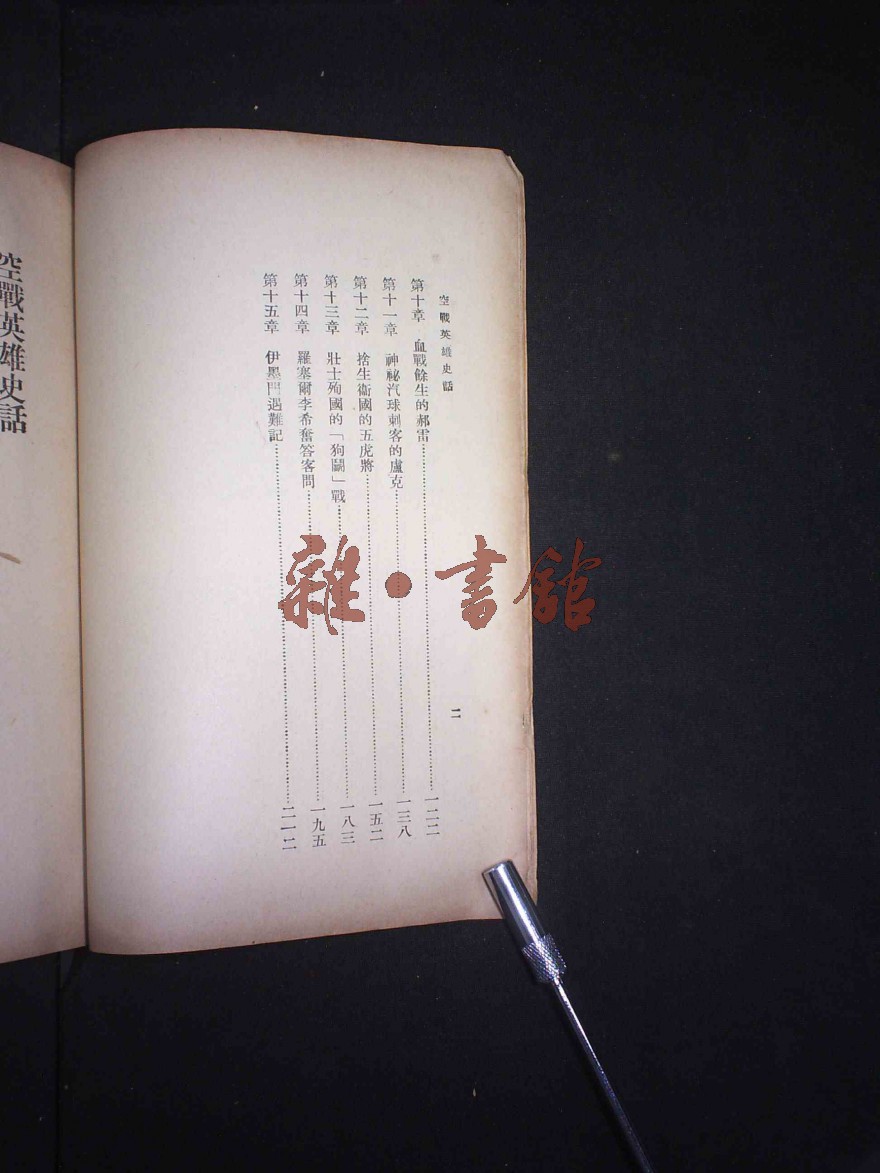 空戰英雄史話
第十章 血戰餘生的郝雷……一二二
第十一章 神祕汽球刺客的盧克……一三八
第十二章 捨生衞國的五虎將……一五二
第十三章 壯士殉國的「狗鬭」戰……一八三
第十四章 羅塞爾李希奮答客問……一九五
第十五章 伊墨門遇難記……二一二
二
空戰英雄史話
雜·書館